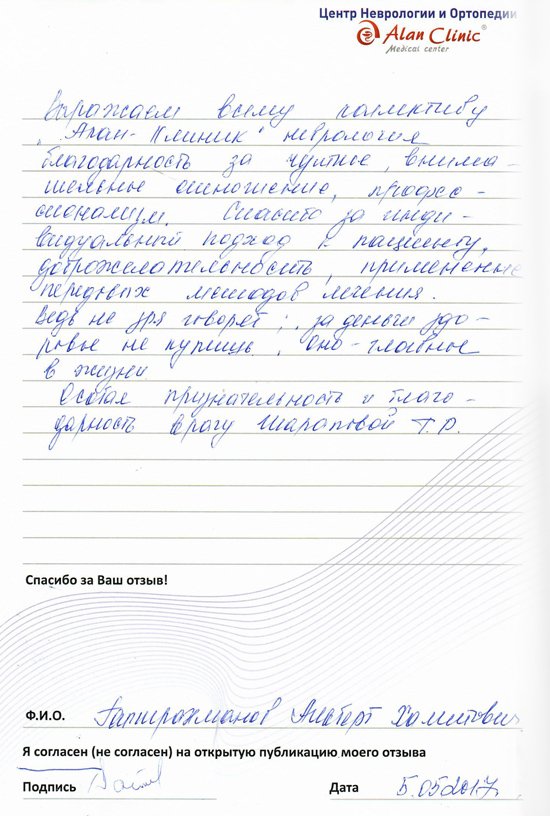 Центр Неврологии и Ортопедии
Alan Clinic®
Medical center
Выражаем всему коллективу
"Алан-Клиник" неврология
благодарность за чуткое, внима-
тельное отношение, профес-
сионализм. Спасибо за инди-
видуальный подход к пациенту,
доброжелательность, применение
передовых методов лечения.
Ведь не зря говорят: за деньги здо-
ровье не купишь, оно-главное
в жизни
Особая признательность и благо-
дарность врачу Шараповой Т.Р.
Спасибо за Ваш отзыв!
Ф.И.О. Гапирахманов Альберт Хамитович
Я согласен (не согласен) на открытую публикацию моего отзыва
Подпись Дата 5.05.2017.